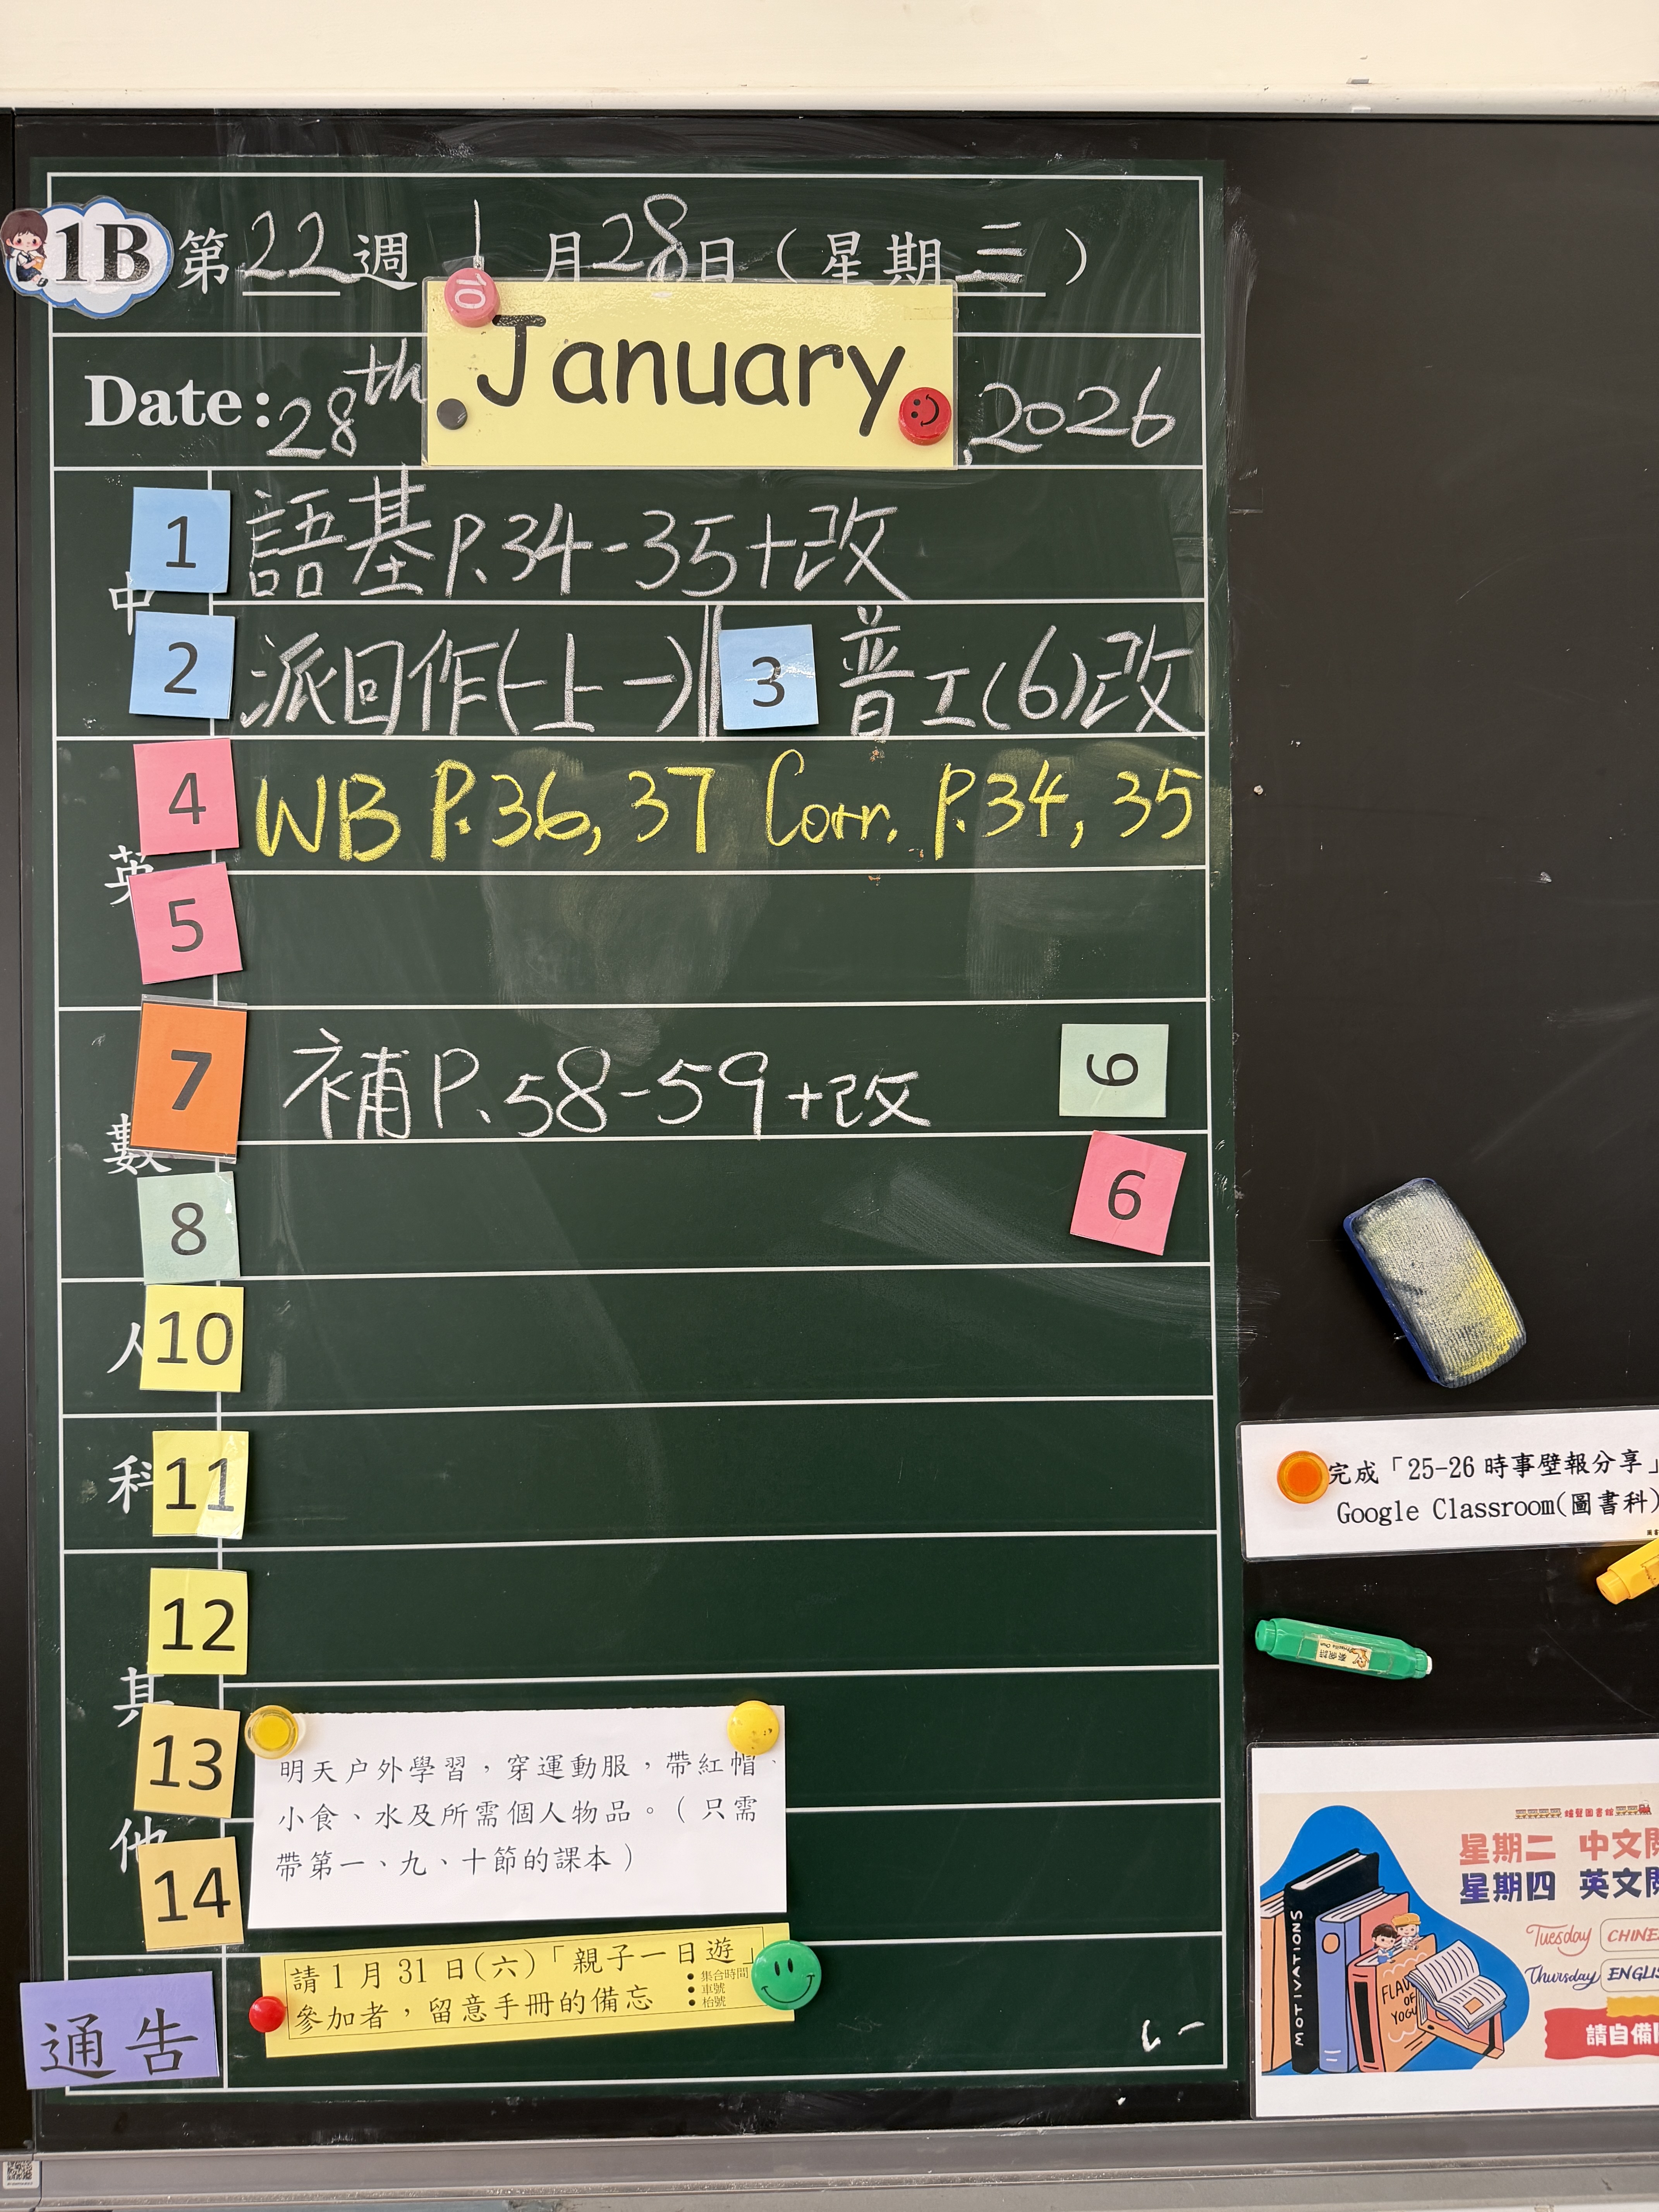 1B 第22週 1月28日（星期三）
Date: 28th January, 2026
中
1 語基P.34-35+改
2 派回作(一上一) 3 普工(6)改
英
4 WB P.36, 37 Corr. P.34, 35
5
數
7 補P.58-59+改 9
8 6
人
10
科
11
12
其他
13
14
明天户外學習，穿運動服，帶紅帽、
小食、水及所需個人物品。（只需
帶第一、九、十節的課本）
通告
請1月31日(六)「親子一日遊」
參加者，留意手冊的備忘
• 集合時間
• 車號
• 枱號
完成「25-26時事壁報分享」
Google Classroom(圖書科)
星期二 中文
星期四 英文
Tuesday CHINE
Thursday ENGLIS
請自備
MOTIVATIONS
FLAV
OF
YOGU